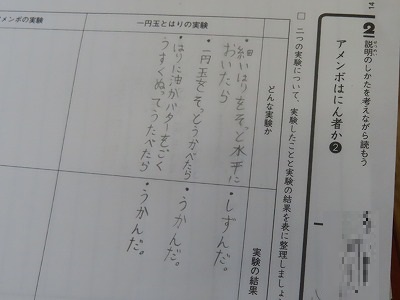 14
2 説明のしかたを考えながら読もう
アメンボはにん者か②
□ 二つの実験について、実験したことと実験の結果を表に整理しましょ
どんな実験か
実験の結果
一円玉とはりの実験
・細いはりをそっと水平に
おいたら
・しずんだ。
・一円玉をそっとうかべたら
・うかんだ。
・はりに油かバターをごく
うすくぬってうかべたら
・うかんだ。
メンボの実験